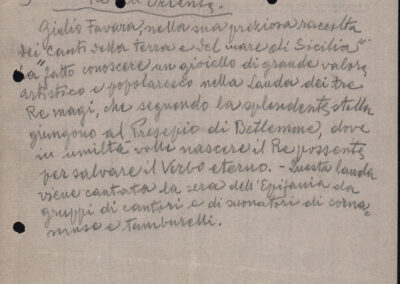 Re d'Oriente
Giulio Favara, nella sua preziosa raccolta
dei canti della terra e del mare di Sicilia"
"a" fatto conoscere un gioiello di grande valore
artistico e popolaresco nella Lauda dei tre
Re magi, che seguendo la splendente stella
giungono al Presepio di Betlemme, dove
in umiltà volle nascere il Re possente
per salvare il Verbo eterno. - Questa lauda
viene cantata la sera dell'Epifania da
gruppi di cantori e di suonatori di corna=
muse e tamburelli.